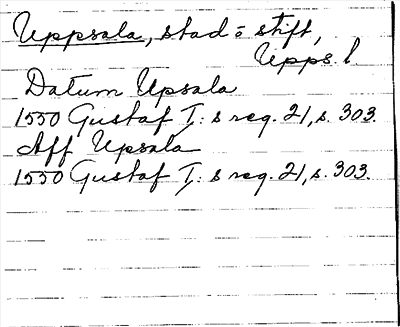 Uppsala, stad o stift,
Upps. l
Datum Upsala
1550 Gustaf I: s reg. 21, s. 303.
Aff Upsala
1550 Gustaf I: s reg. 21, s. 303.